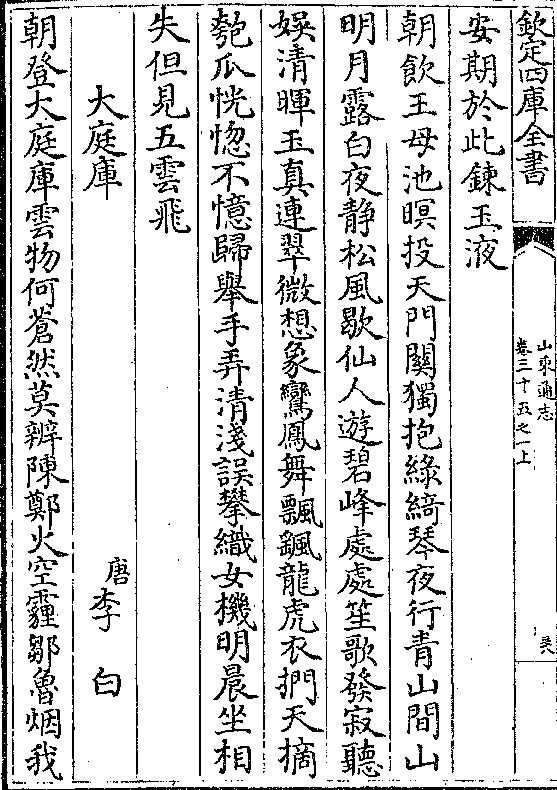 欽定四庫全書
山東通志
卷三十五之一上
安期於此鍊玉液
朝飲王母池暝投天門闗獨抱綠綺琴夜行青山間山
明月露白夜静松風歇仙人遊碧峰處處笙歌發寂聽
娛清暉玉真連翠微想象鸞鳳舞飄颻龍虎衣捫天摘
匏瓜恍惚不憶歸舉手弄清淺誤攀織女機明晨坐相
失但見五雲飛
大庭庫
唐李白
朝登大庭庫雲物何蒼然莫辨陳鄭火空霾鄒魯烟我